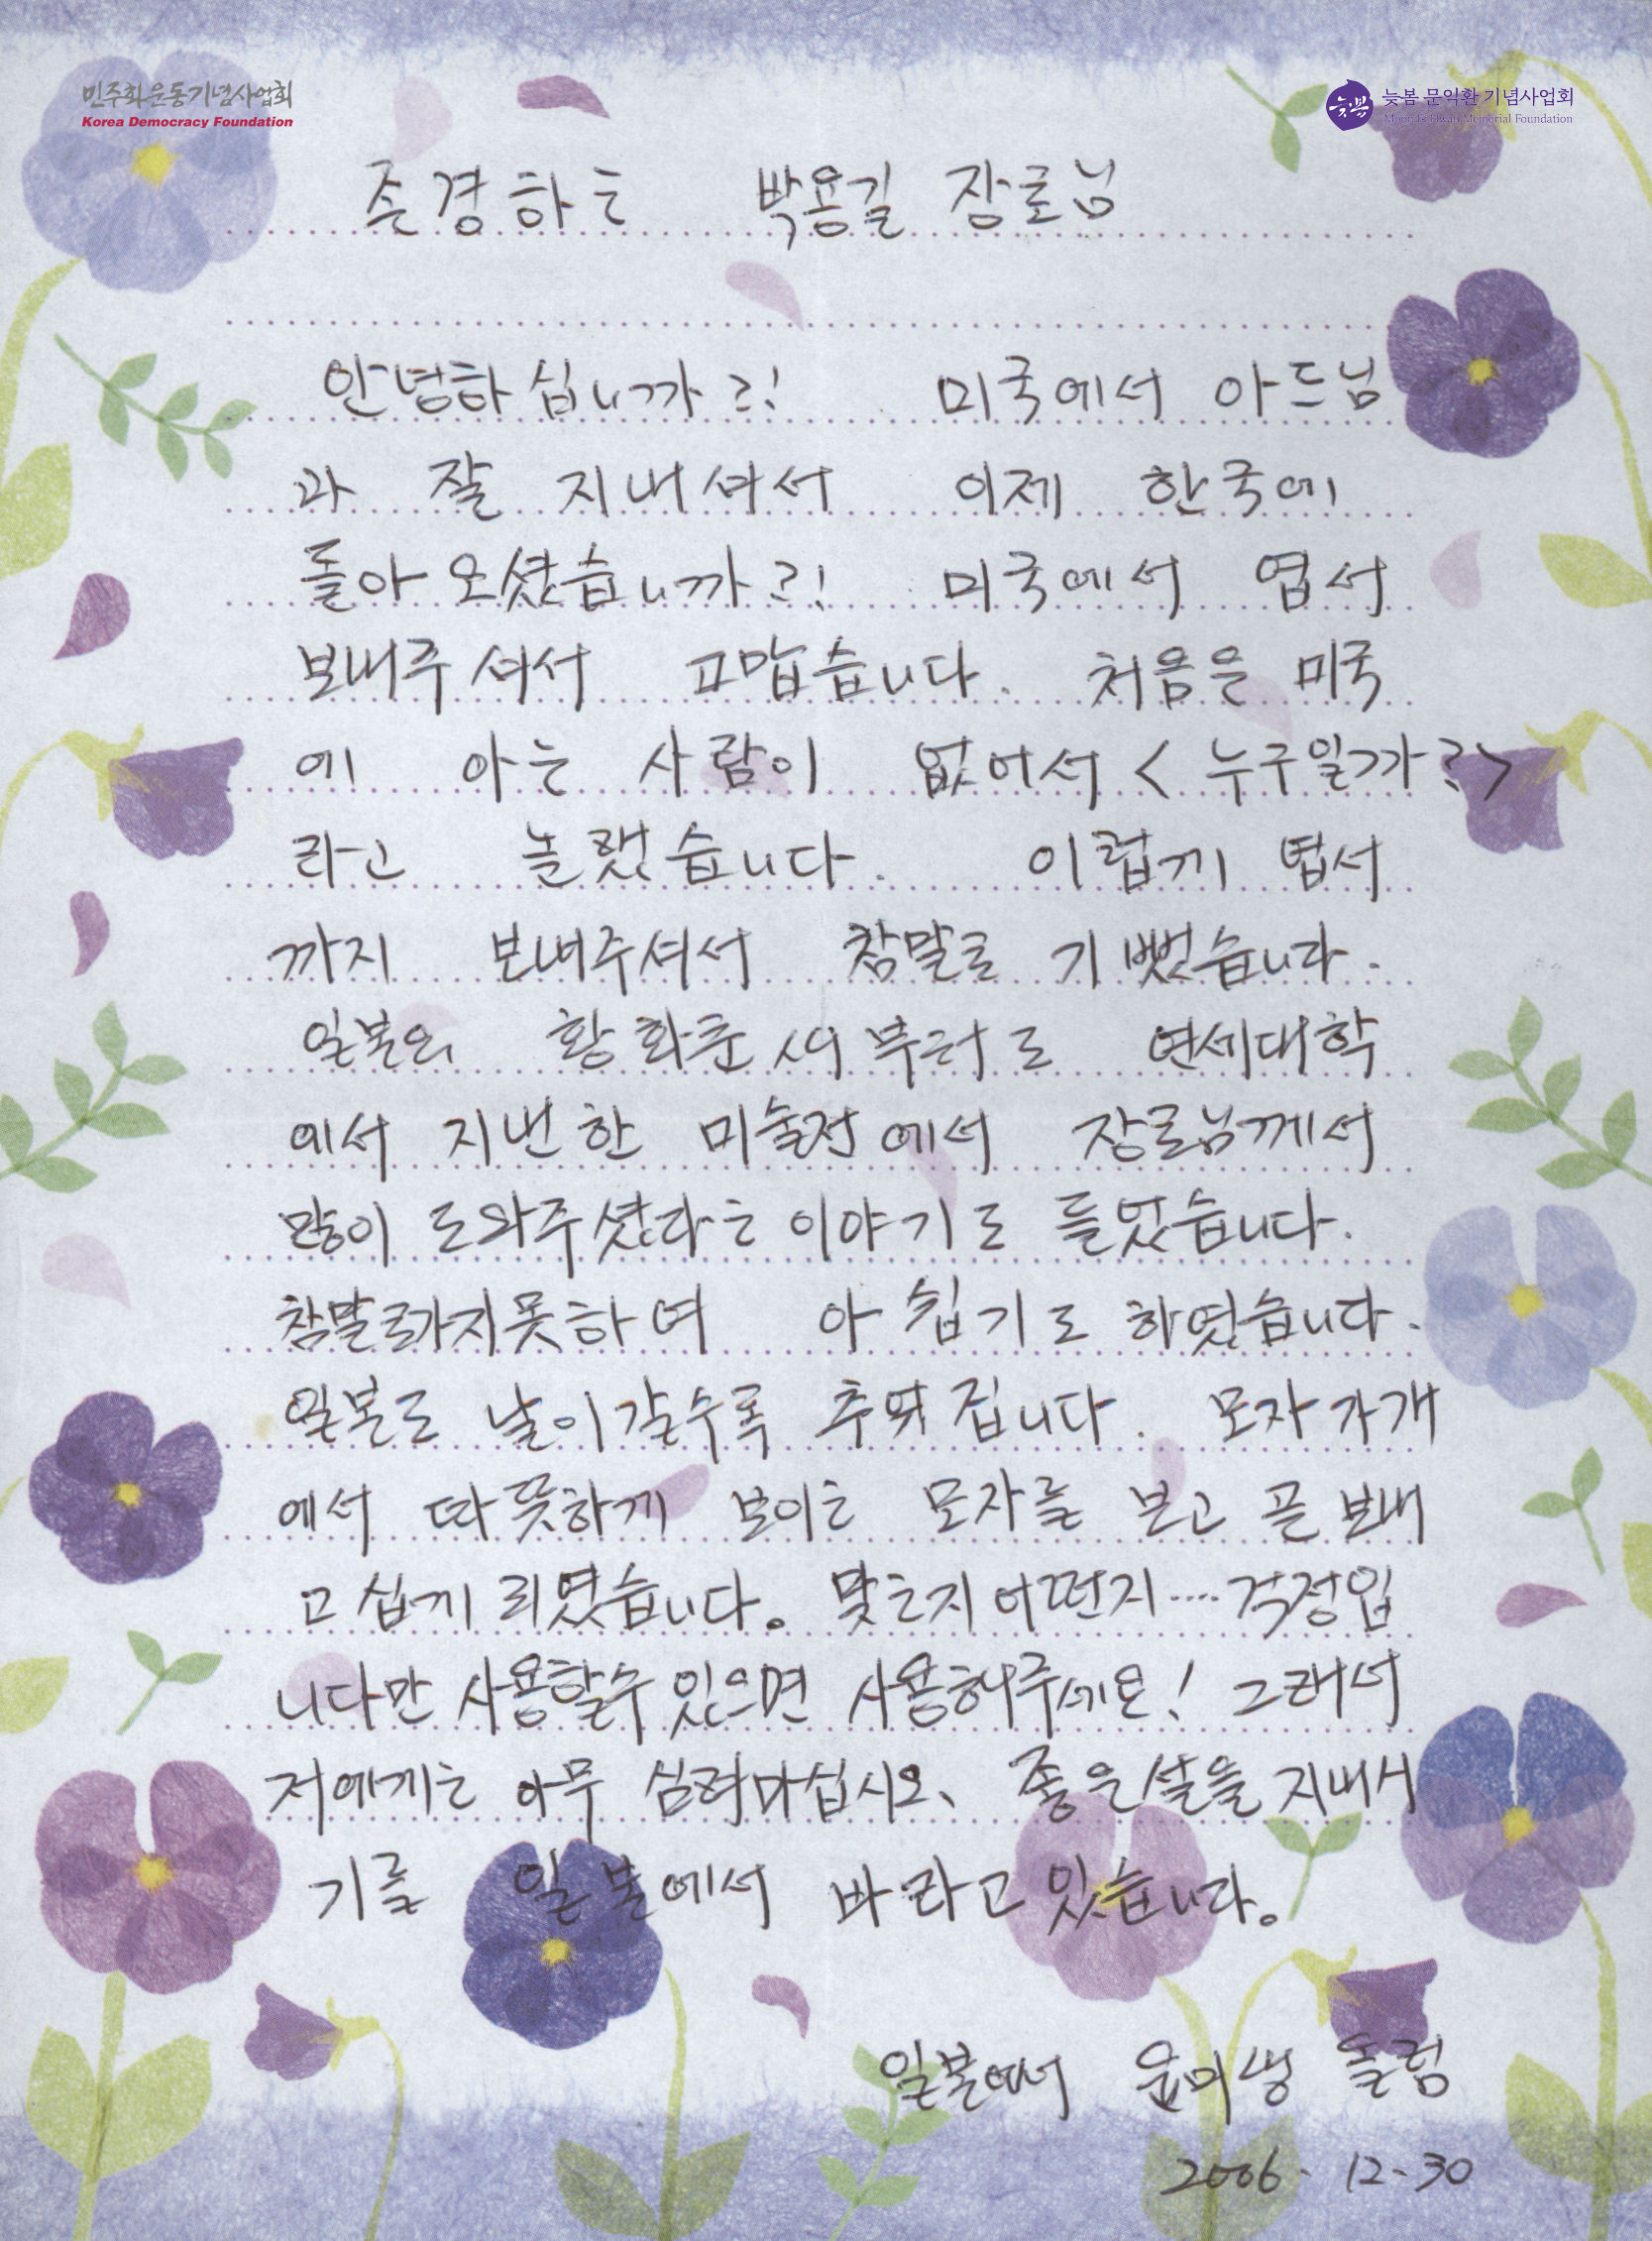 민주화운동기념사업회
Korea Democracy Foundation
늦봄
늦봄 문익환 기념사업회
Moon Ik Hwan Memorial Foundation
존경하는 박용길 장로님
안녕하십니까?! 미국에서 아드님
과 잘 지내셔서 이제 한국에
돌아오셨습니까?! 미국에서 엽서
보내주셔서 고맙습니다. 처음은 미국
에 아는 사람이 없어서 <누구일까?>
라고 놀랬습니다. 이럽끼 엽서
까지 보내주셔서 참말로 기뻤습니다.
일본의 황화춘씨부터도 연세대학
에서 지낸한 미술전에서 장로님께서
많이 도와주셨다는 이야기도 들었습니다.
참말로가지못하여 아쉽기도 하였습니다.
일본도 날이갈수록 추워집니다. 모자가개
에서 따뜻하게 보이는 모자를 보고 곧 보내
고 십게 되였습니다. 맞는지 어떤지····걱정입
니다만 사용할수 있으면 사용해주세요! 그래서
저에게는 아무 심려마십시오、 좋은설을 지내시
기를 일본에서 바라고있습니다.
일본에서 윤미생 올림
2006. 12. 30